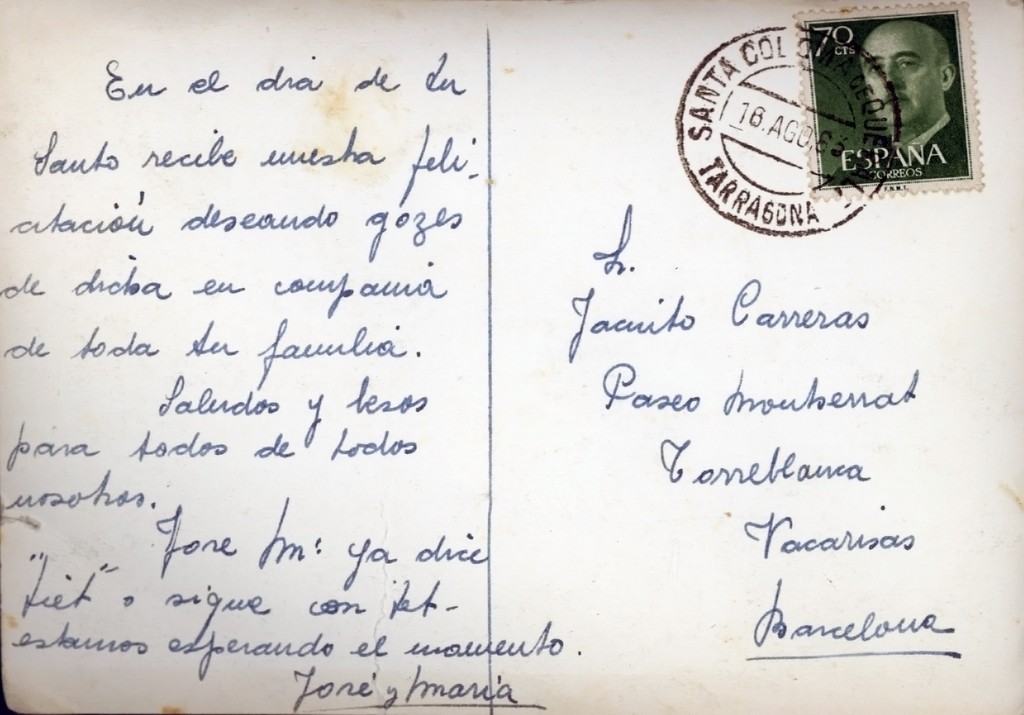 En el dia de tu
Santo recibe nuestra feli-
citación deseando gozes
de dicha en compania
de toda tu familia.
Saludos y besos
para todos de todos
nosotros.
Jose Mª ya dice
"tiet" o sigue con tet-
estamos esperando el momento.
José y Maria
70
CTS
ESPAÑA
CORREOS
F.N.M.T.
SANTA COLOMA DE QUERALT
16. AGO 63
TARRAGONA
Sr.
Jacinto Carreras
Paseo Montserrat
Torreblanca
Vacarisas
Barcelona